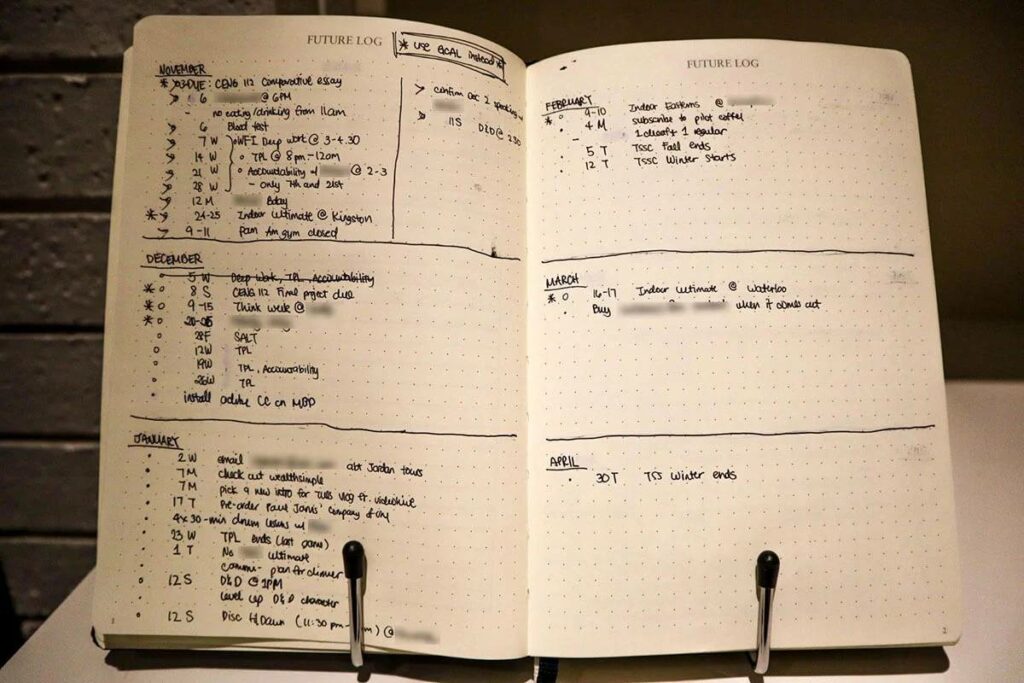 FUTURE LOG
* USE GCAL instead *
NOVEMBER
DUE: CENG 112 Comparative essay
6 @ 6PM
- no eating/drinking from 11am
6 Blood test
7 W WFI Deep work @ 3-4.30
14 W TPL @ 8pm-12am
21 W Accountability w/ @ 2-3
28 W - only 7th and 21st
12 M Bday
* 24-25 Indoor Ultimate @ Kingston
9-11 Pan Am gym closed
> confirm Dec 2
11 S D&D @ 2.30
DECEMBER
5 W Deep Work, TPL, Accountability
* 8 S CENG 112 Final project due
* 9-15 Think week @
* 20-
28F SALT
12W TPL
19W TPL, Accountability
26W TPL
install Adobe CC on MBP
JANUARY
2 W email abt Jordan tours
7 M check out wealthsimple
7 M pick a new intro for Tues vlog ft. videohive
17 T Pre-order Paul Jarvis' Company of One
4x 30-min drum lessons w/
23 W TPL ends (last game)
1 T No Ultimate
- plan for dinner
12 S D&D @ 1PM
Level up D&D character
12 S Disc (11:30 pm- ) @
1
FUTURE LOG
FEBRUARY
* 9-10 Indoor Easterns @
4 M subscribe to pilot coffee
1 decaf + 1 regular
5 T TSSC Fall ends
12 T TSSC Winter starts
MARCH
* 16-17 Indoor Ultimate @ Waterloo
Buy when it comes out
APRIL
30T Winter ends
2